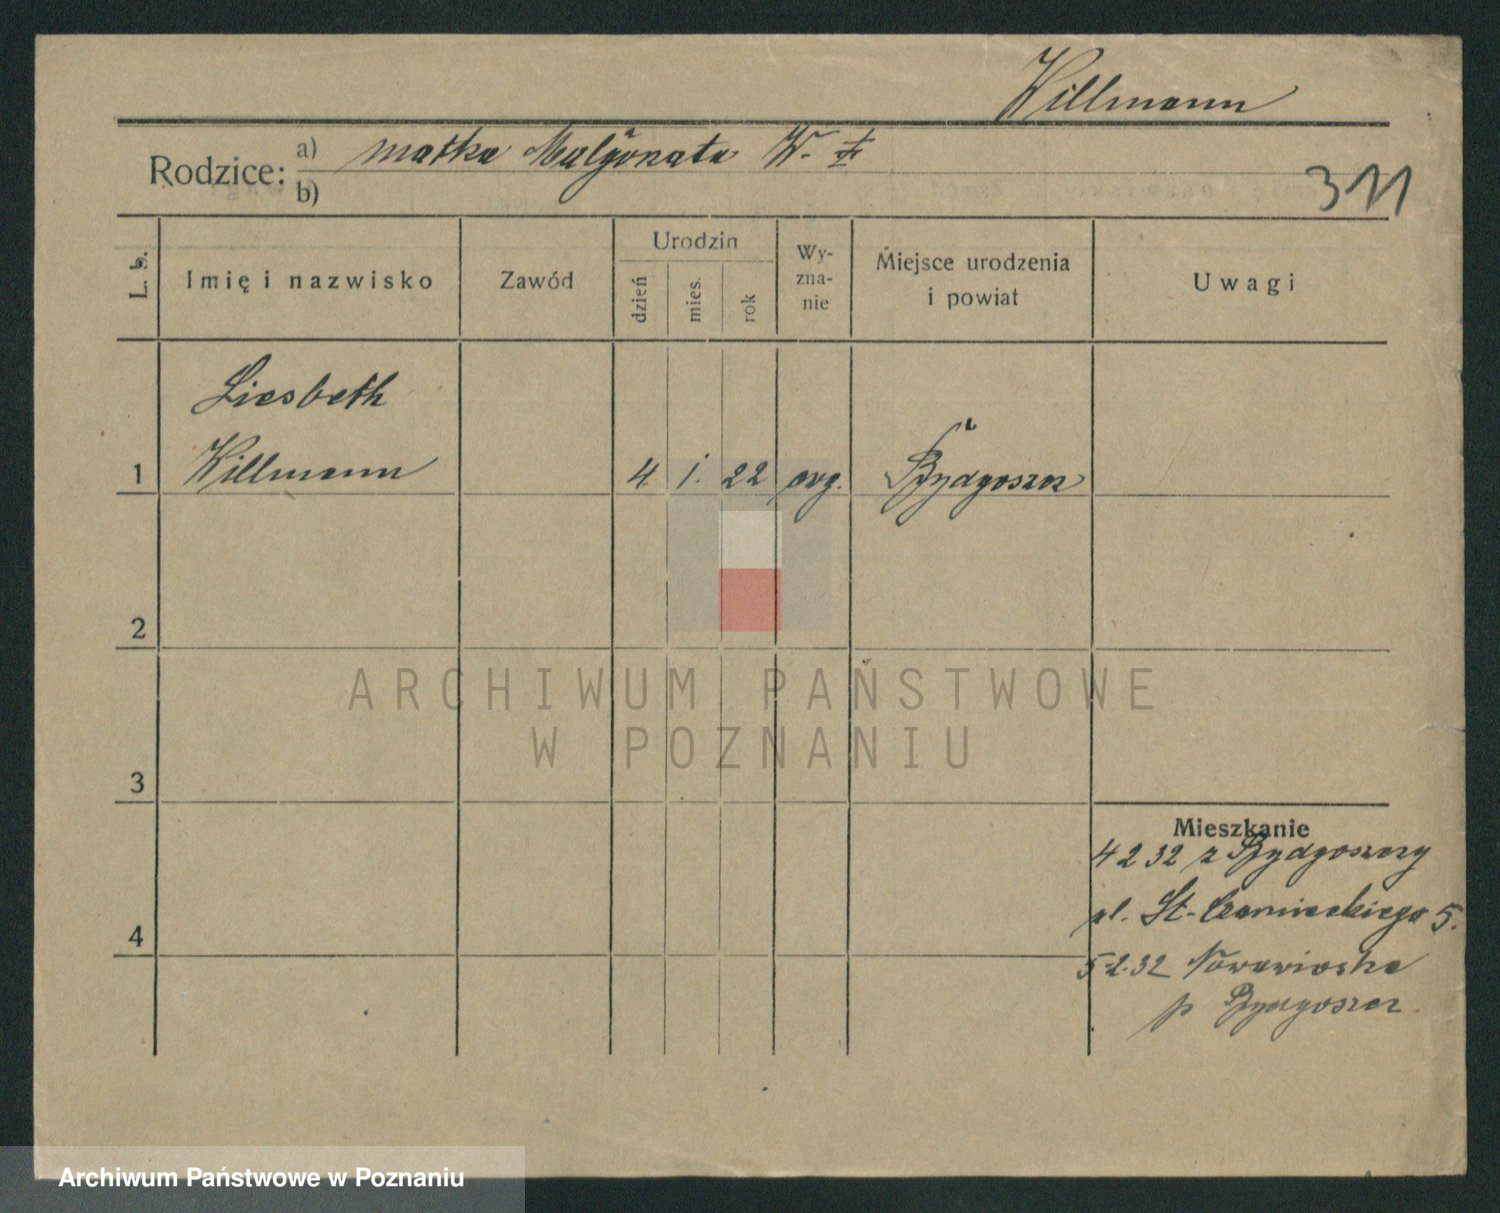 Willmann
Rodzice: a) matka Małgorzata W.
311
b)
L. b.
Imię i nazwisko
Zawód
Urodzin
dzień
mies.
rok
Wy-
zna-
nie
Miejsce urodzenia
i powiat
Uwagi
Liesbeth
1 Willmann 4. 1. 22 evg. Bydgoszcz
2
ARCHIWUM PAŃSTWOWE
W POZNANIU
3
Mieszkanie
4 2 32 z Bydgoszczy
ul. St. Czarnieckiego 5.
4
5.2.32
p Bydgoszcz.
Archiwum Państwowe w Poznaniu